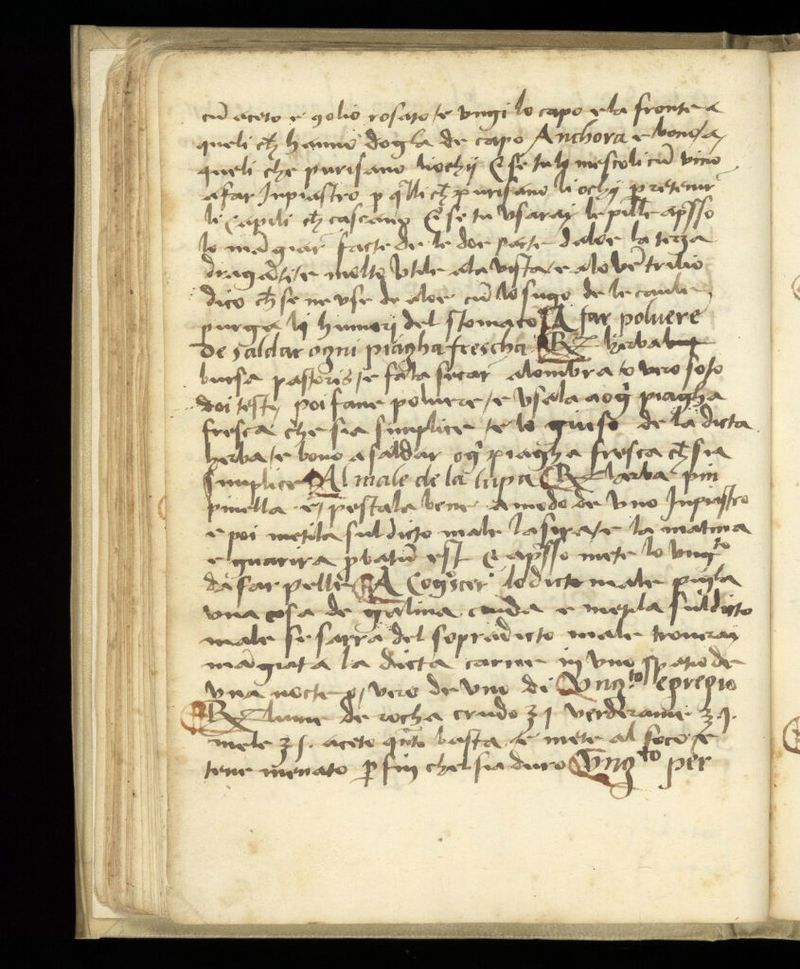 cū aceto e golio rosato / e vngi lo capo e la fronte a
queli ch hanno dogla de capo Anchora e bono / a
queli che purisano liochij & se tuly mescoli cū vino
afar Inpiastro p qlli ch purisano li ochij p retenir
li Capili ch cascano & se tu vsaray le pille apsso
lo māgiar facte de le doe parte daloe la terza
dragante molto vtile ala vista e alo vētrilio
dico ch se ne vse de aloe cū lo sugo de le caule
purga li humorj del stomaco A far poluere
de saldar ogni piagha frescha Rx herba
bursa pastoris / e fala secar alombra o vero soto
doi testy poi fane poluere / e vsala a og piagha
fresca che sia simplice / e lo suso de la dicta
herba / e bono a saldar og piagha fresca ch sia
simplice Al male de la lupa Rx larba pin
pinella e pestala bene a modo de vno Inpiastro
e poi metila sul dicto male la sera / e la matina
e guarira pbatū est & apsso mete lo vngto
da far pelle A Cogscer lo dicto male pigla
vna cosa de galina cruda e metila sul dicto
male se sarra del sopradicto male troueray
māgiata la dicta carne in vno spatio de
vna nocte o vero de vno di Vngto egregio
Rx lume de rocha crudo ʒ j verderame ʒ j.
mele ʒ s. aceto qnto basta e mete al foco e
tene menato p fin chel sia duro Vngto per